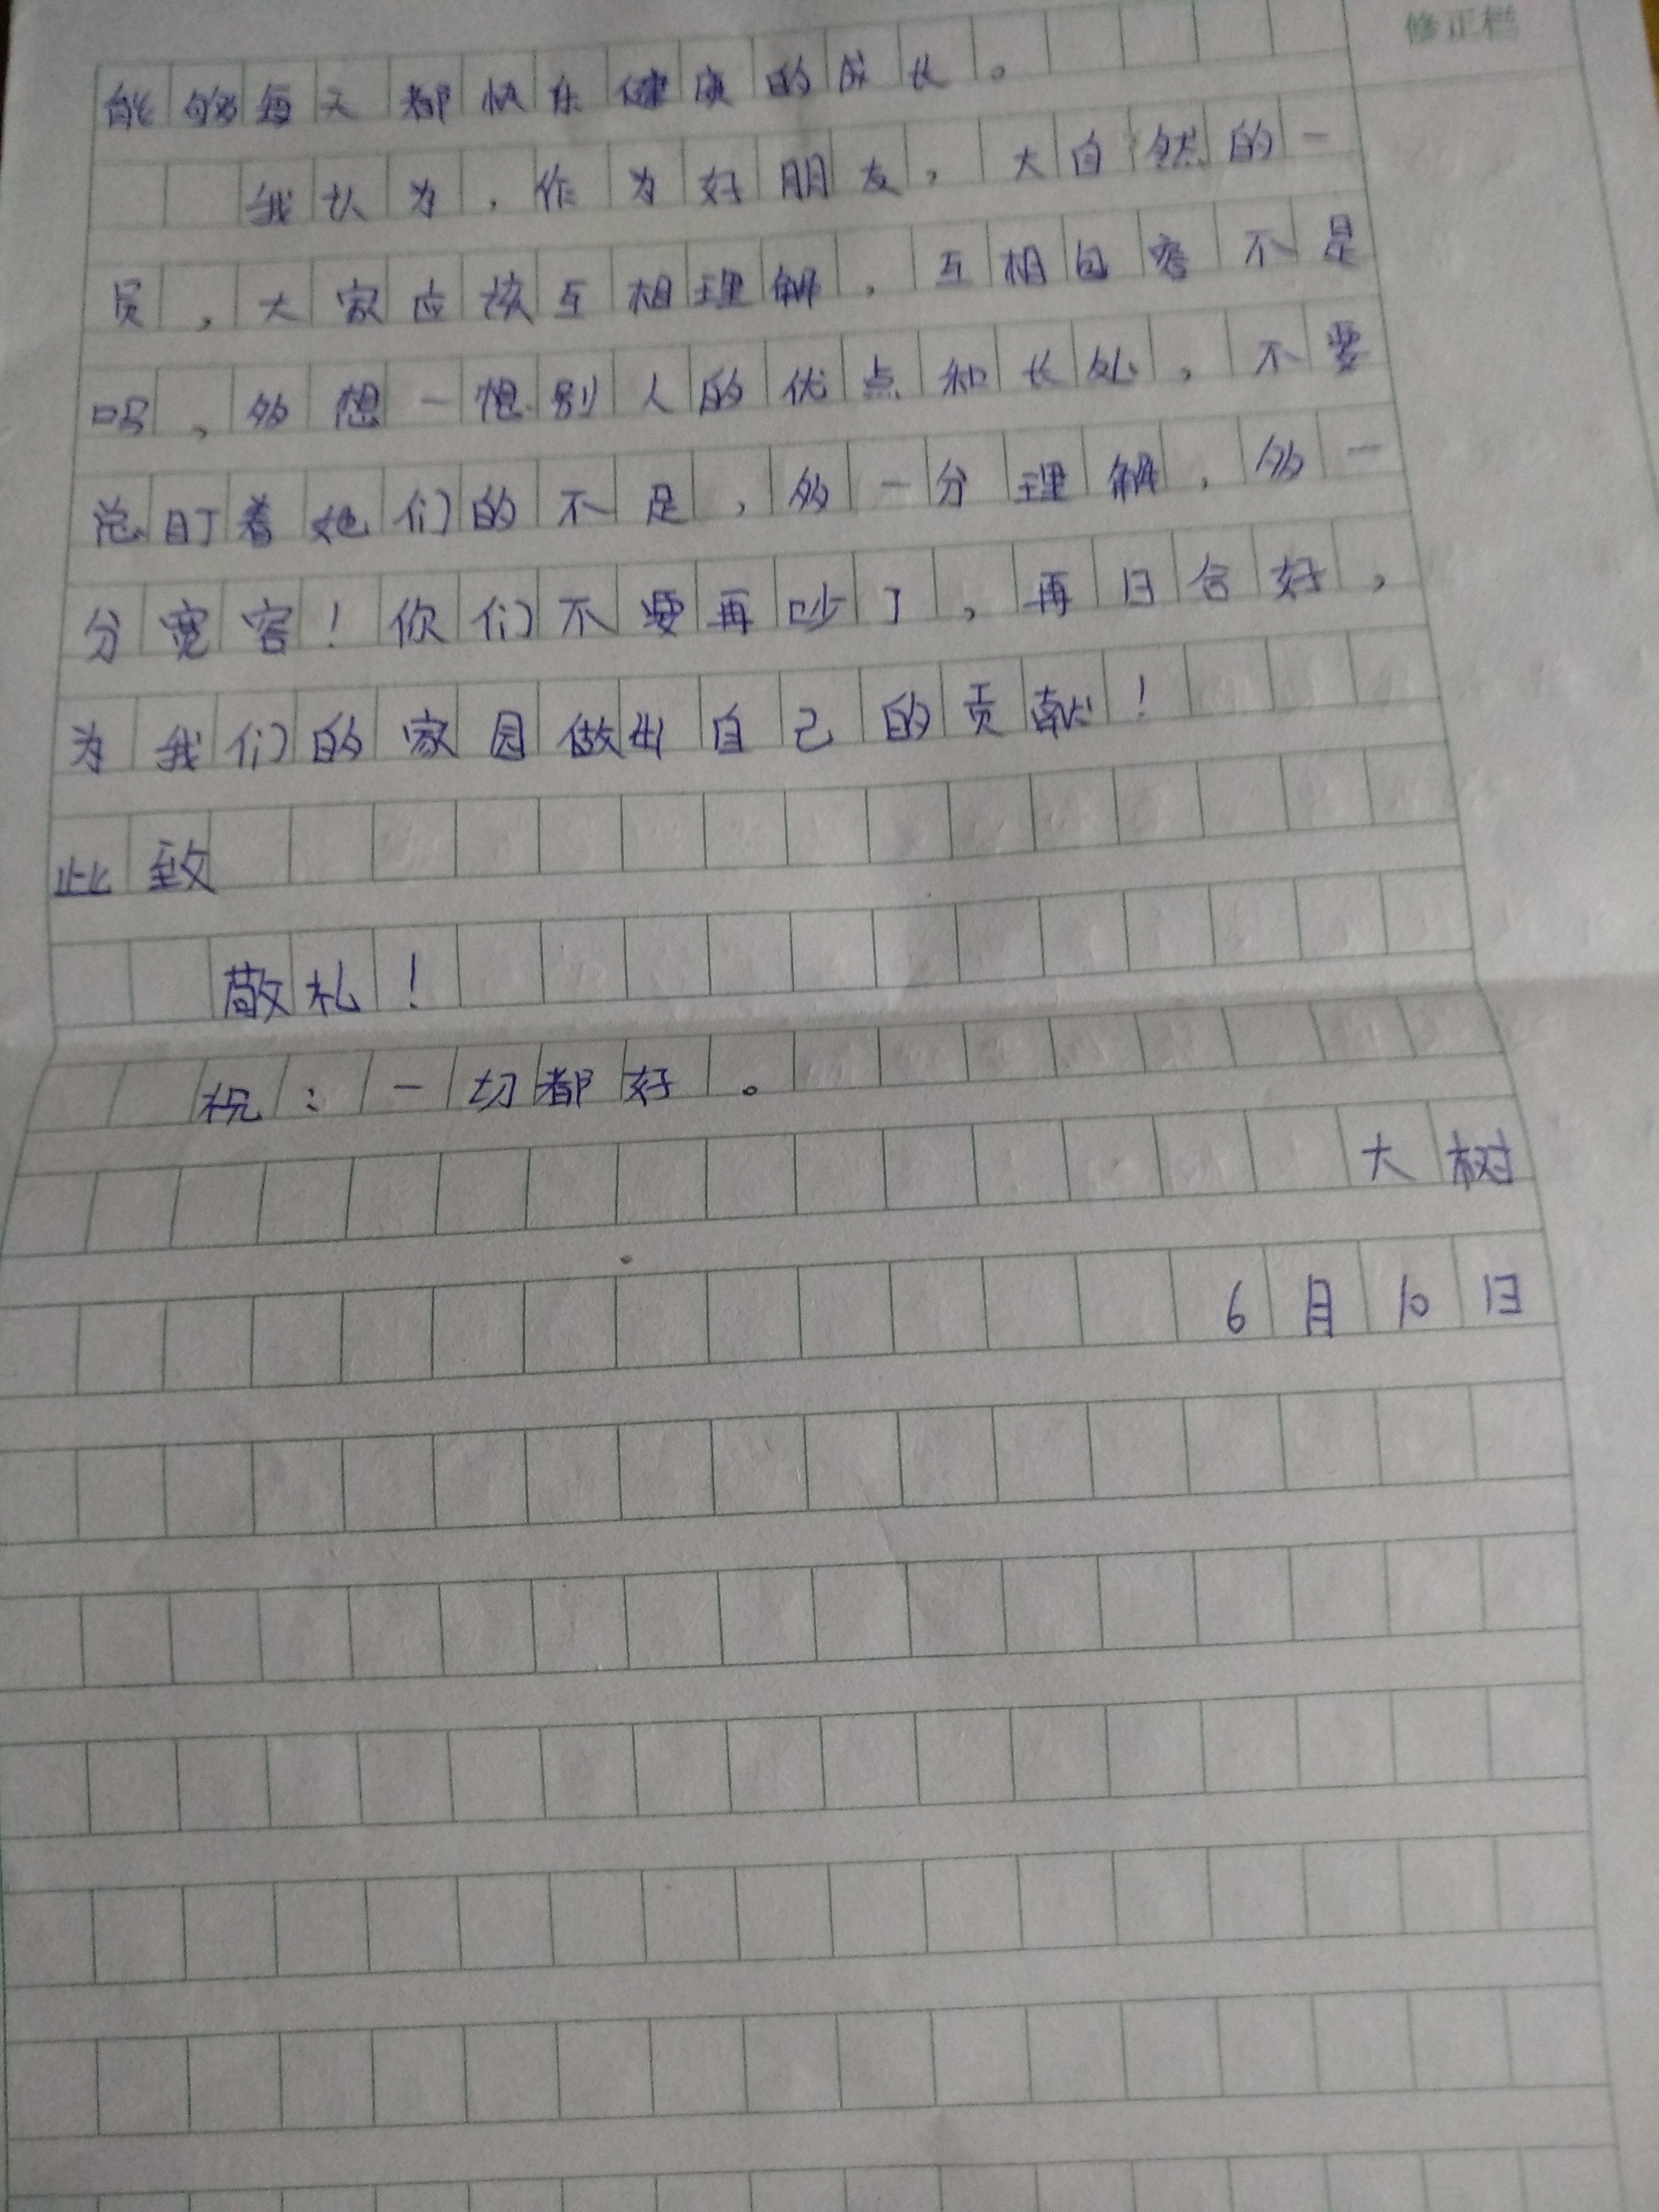 修正栏
能够每天都快乐健康的成长。
我认为,作为好朋友,大自然的一
员,大家应该互相理解,互相包容不是
吗,多想一想别人的优点和长处,不要
总盯着她们的不足,多一分理解,多一
分宽容!你们不要再吵了,再日合好,
为我们的家园做出自己的贡献!
此致
敬礼!
祝:一切都好。
大树
6月10日